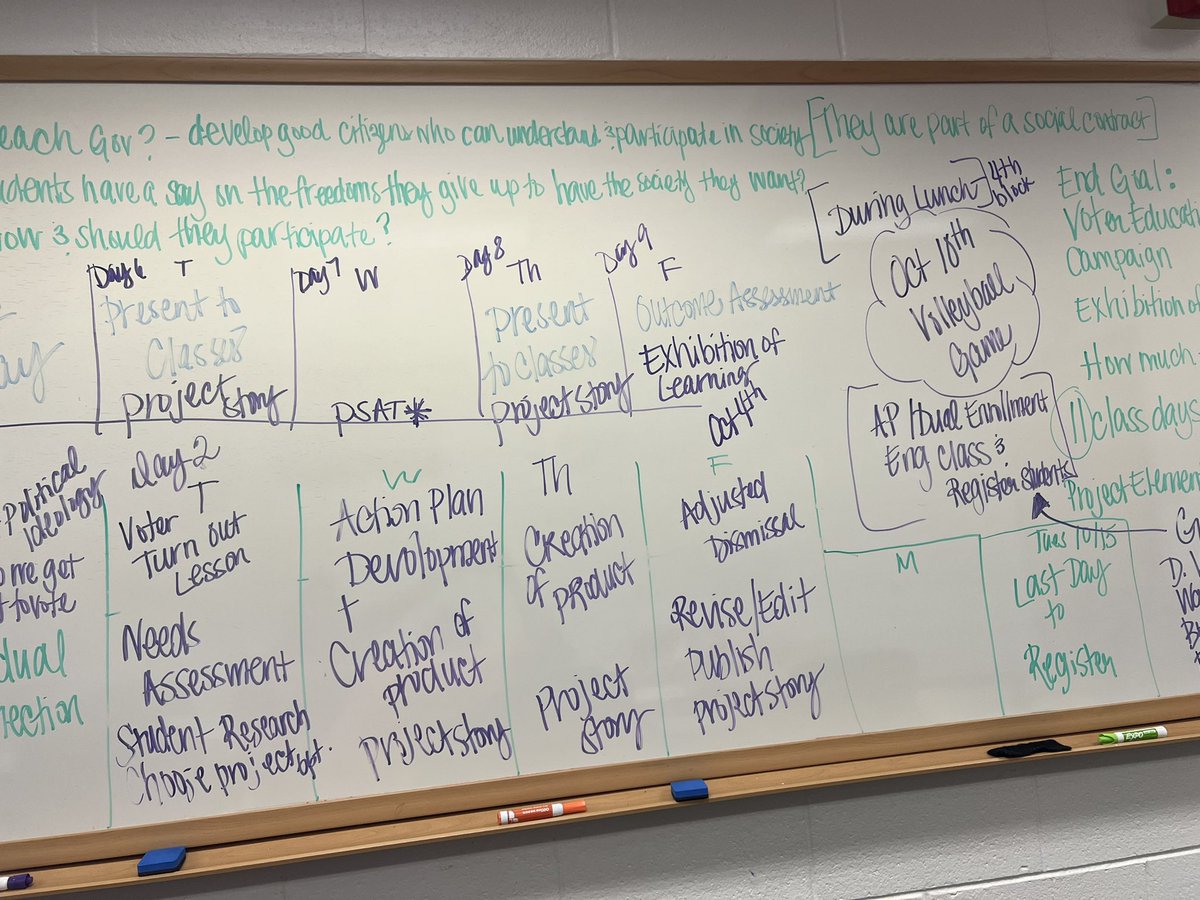 each Gov? - develop good citizens who can understand & participate in society [They are part of a social contract]
udents have a say on the freedoms they give up to have the society they want?
ow & should they participate?
[During Lunch] 4th
block
Oct 10th
Volleyball
Game
End Goal:
Voter Educati
Campaign
Exhibition of
How much
11 class days
Project Elemen
AP / Dual Enrollment
Eng class &
Register students
ay
Day 6 T
Present to
Classes
project story
Day 7 W
PSAT*
Day 8 Th
present
to classes
project story
Day 9 F
Outcome Assessment
Exhibition of
Learning
Oct 4th
Political
ideology
o we get
t to vote
dual
ection
Day 2
T
Voter
Turn out
Lesson
Needs
Assessment
Student Research
Choose project opt.
W
Action Plan
Devolopment
+
Creation of
product
project story
Th
Creation
of product
Project
story
F
Adjusted
Dismissal
Revise/Edit
Publish
project story
M
Tues 10/15
Last Day
to
Register
EXPO